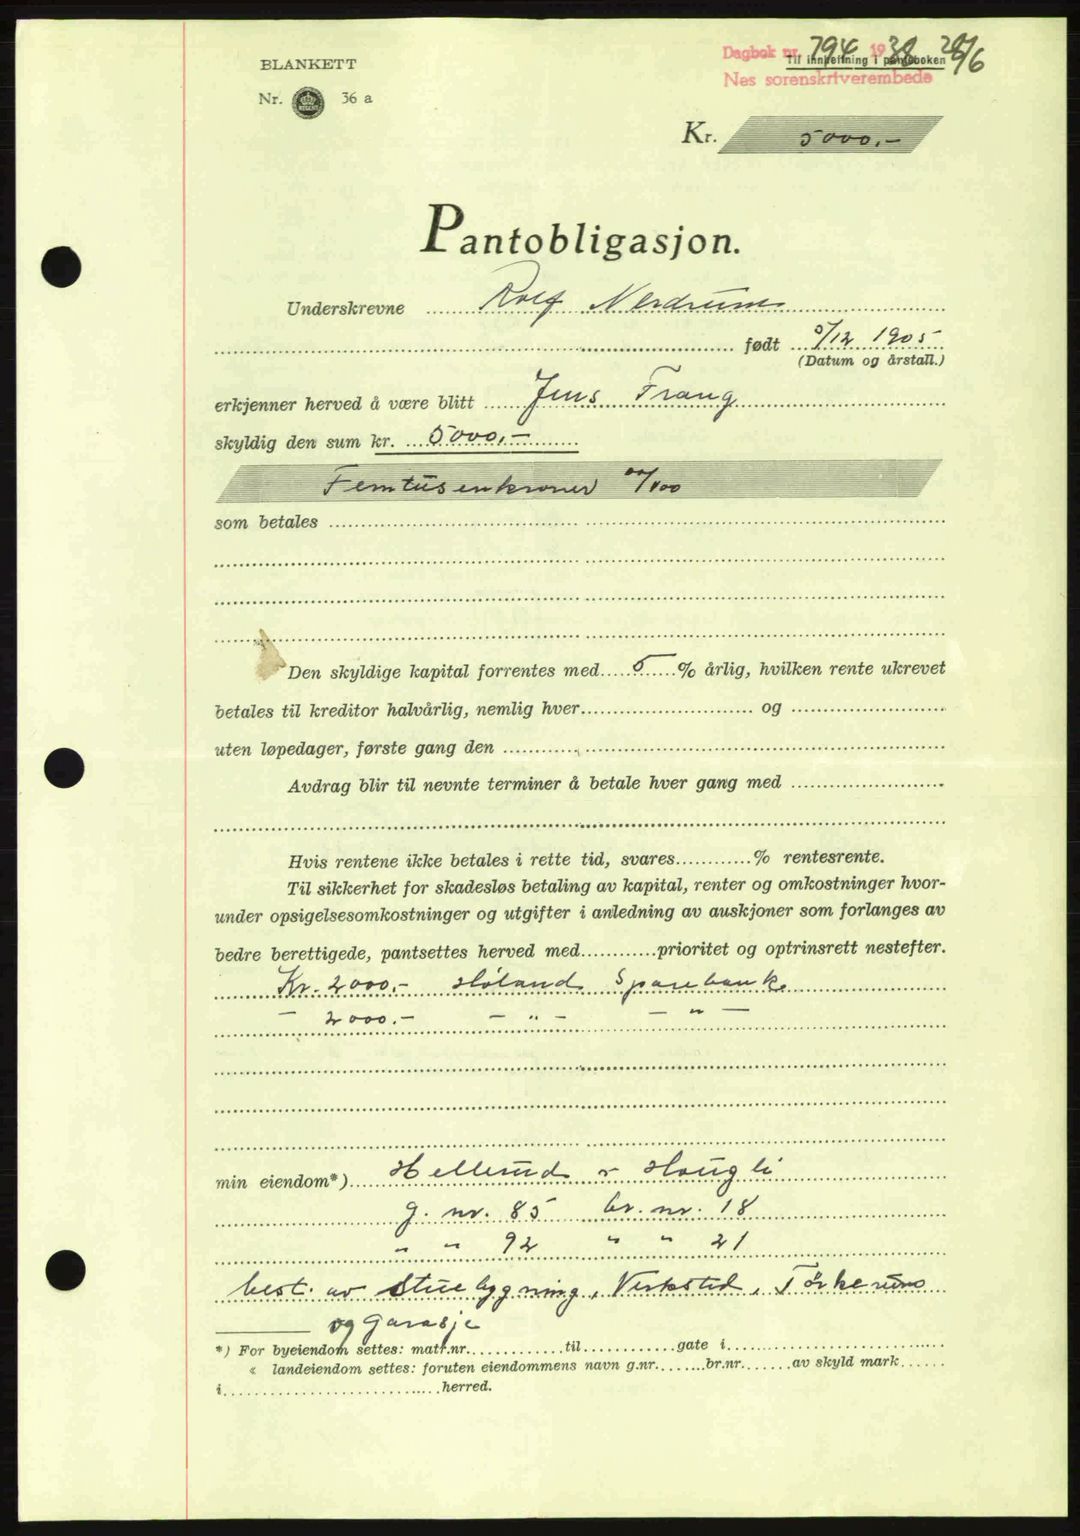 Dagbok nr. 794 1938 20/6
Til innheftning i panteboken
Nes sorenskriverembede
BLANKETT
Nr. 36 a
Kr. 5000.-
Pantobligasjon.
Underskrevne Rolf Nerdrum
født 5/12 1905
(Datum og årstall.)
erkjenner herved å være blitt Jens Frang
skyldig den sum kr. 5000.-
Femtusenkroner 00/100
som betales
Den skyldige kapital forrentes med 5 % årlig, hvilken rente ukrevet
betales til kreditor halvårlig, nemlig hver og
uten løpedager, første gang den
Avdrag blir til nevnte terminer å betale hver gang med
Hvis rentene ikke betales i rette tid, svares % rentesrente.
Til sikkerhet for skadesløs betaling av kapital, renter og omkostninger hvor-
under opsigelsesomkostninger og utgifter i anledning av auskjoner som forlanges av
bedre berettigede, pantsettes herved med prioritet og optrinsrett nestefter.
Kr. 2000.- Høland Sparebank.
— 2000.- — „ — — „ —
min eiendom*) Hellerud & Haugli
g. nr. 85 br. nr. 18
„ „ 92 „ „ 21
best. av Stuebygning, Verksted, Tørkerum
og Garasje
*) For byeiendom settes: matr.nr. til gate i
« landeiendom settes: foruten eiendommens navn g.nr. br.nr. av skyld mark
i herred.